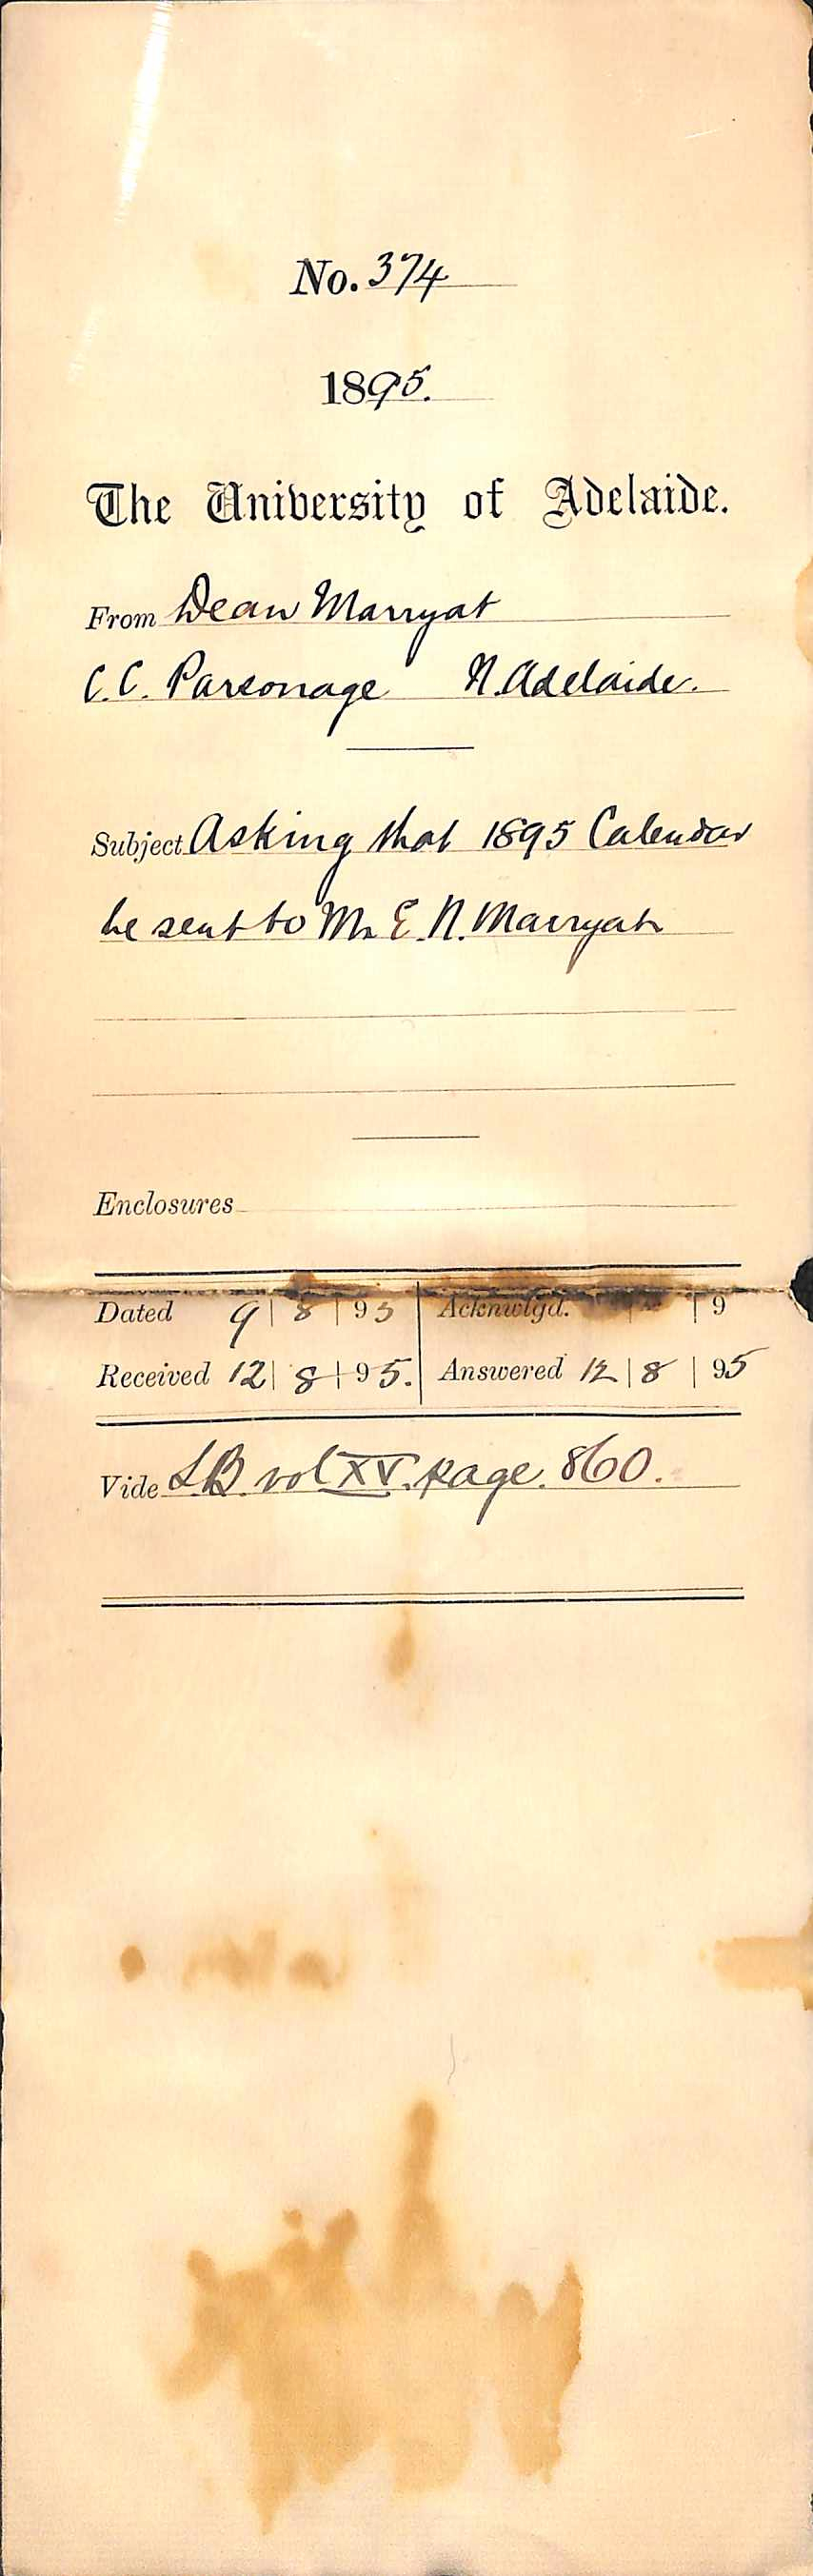 No. 374
1895.
The University of Adelaide.
From Dean Marryat
C.C. Parsonage N. Adelaide.
Subject Asking that 1895 Calendar
be sent to Mr E. N. Marryat
Enclosures
Dated 9 | 8 | 95 Acknwlgd. | | 9
Received 12 | 8 | 95. Answered 12 | 8 | 95
Vide L.B. vol XV. page. 860.